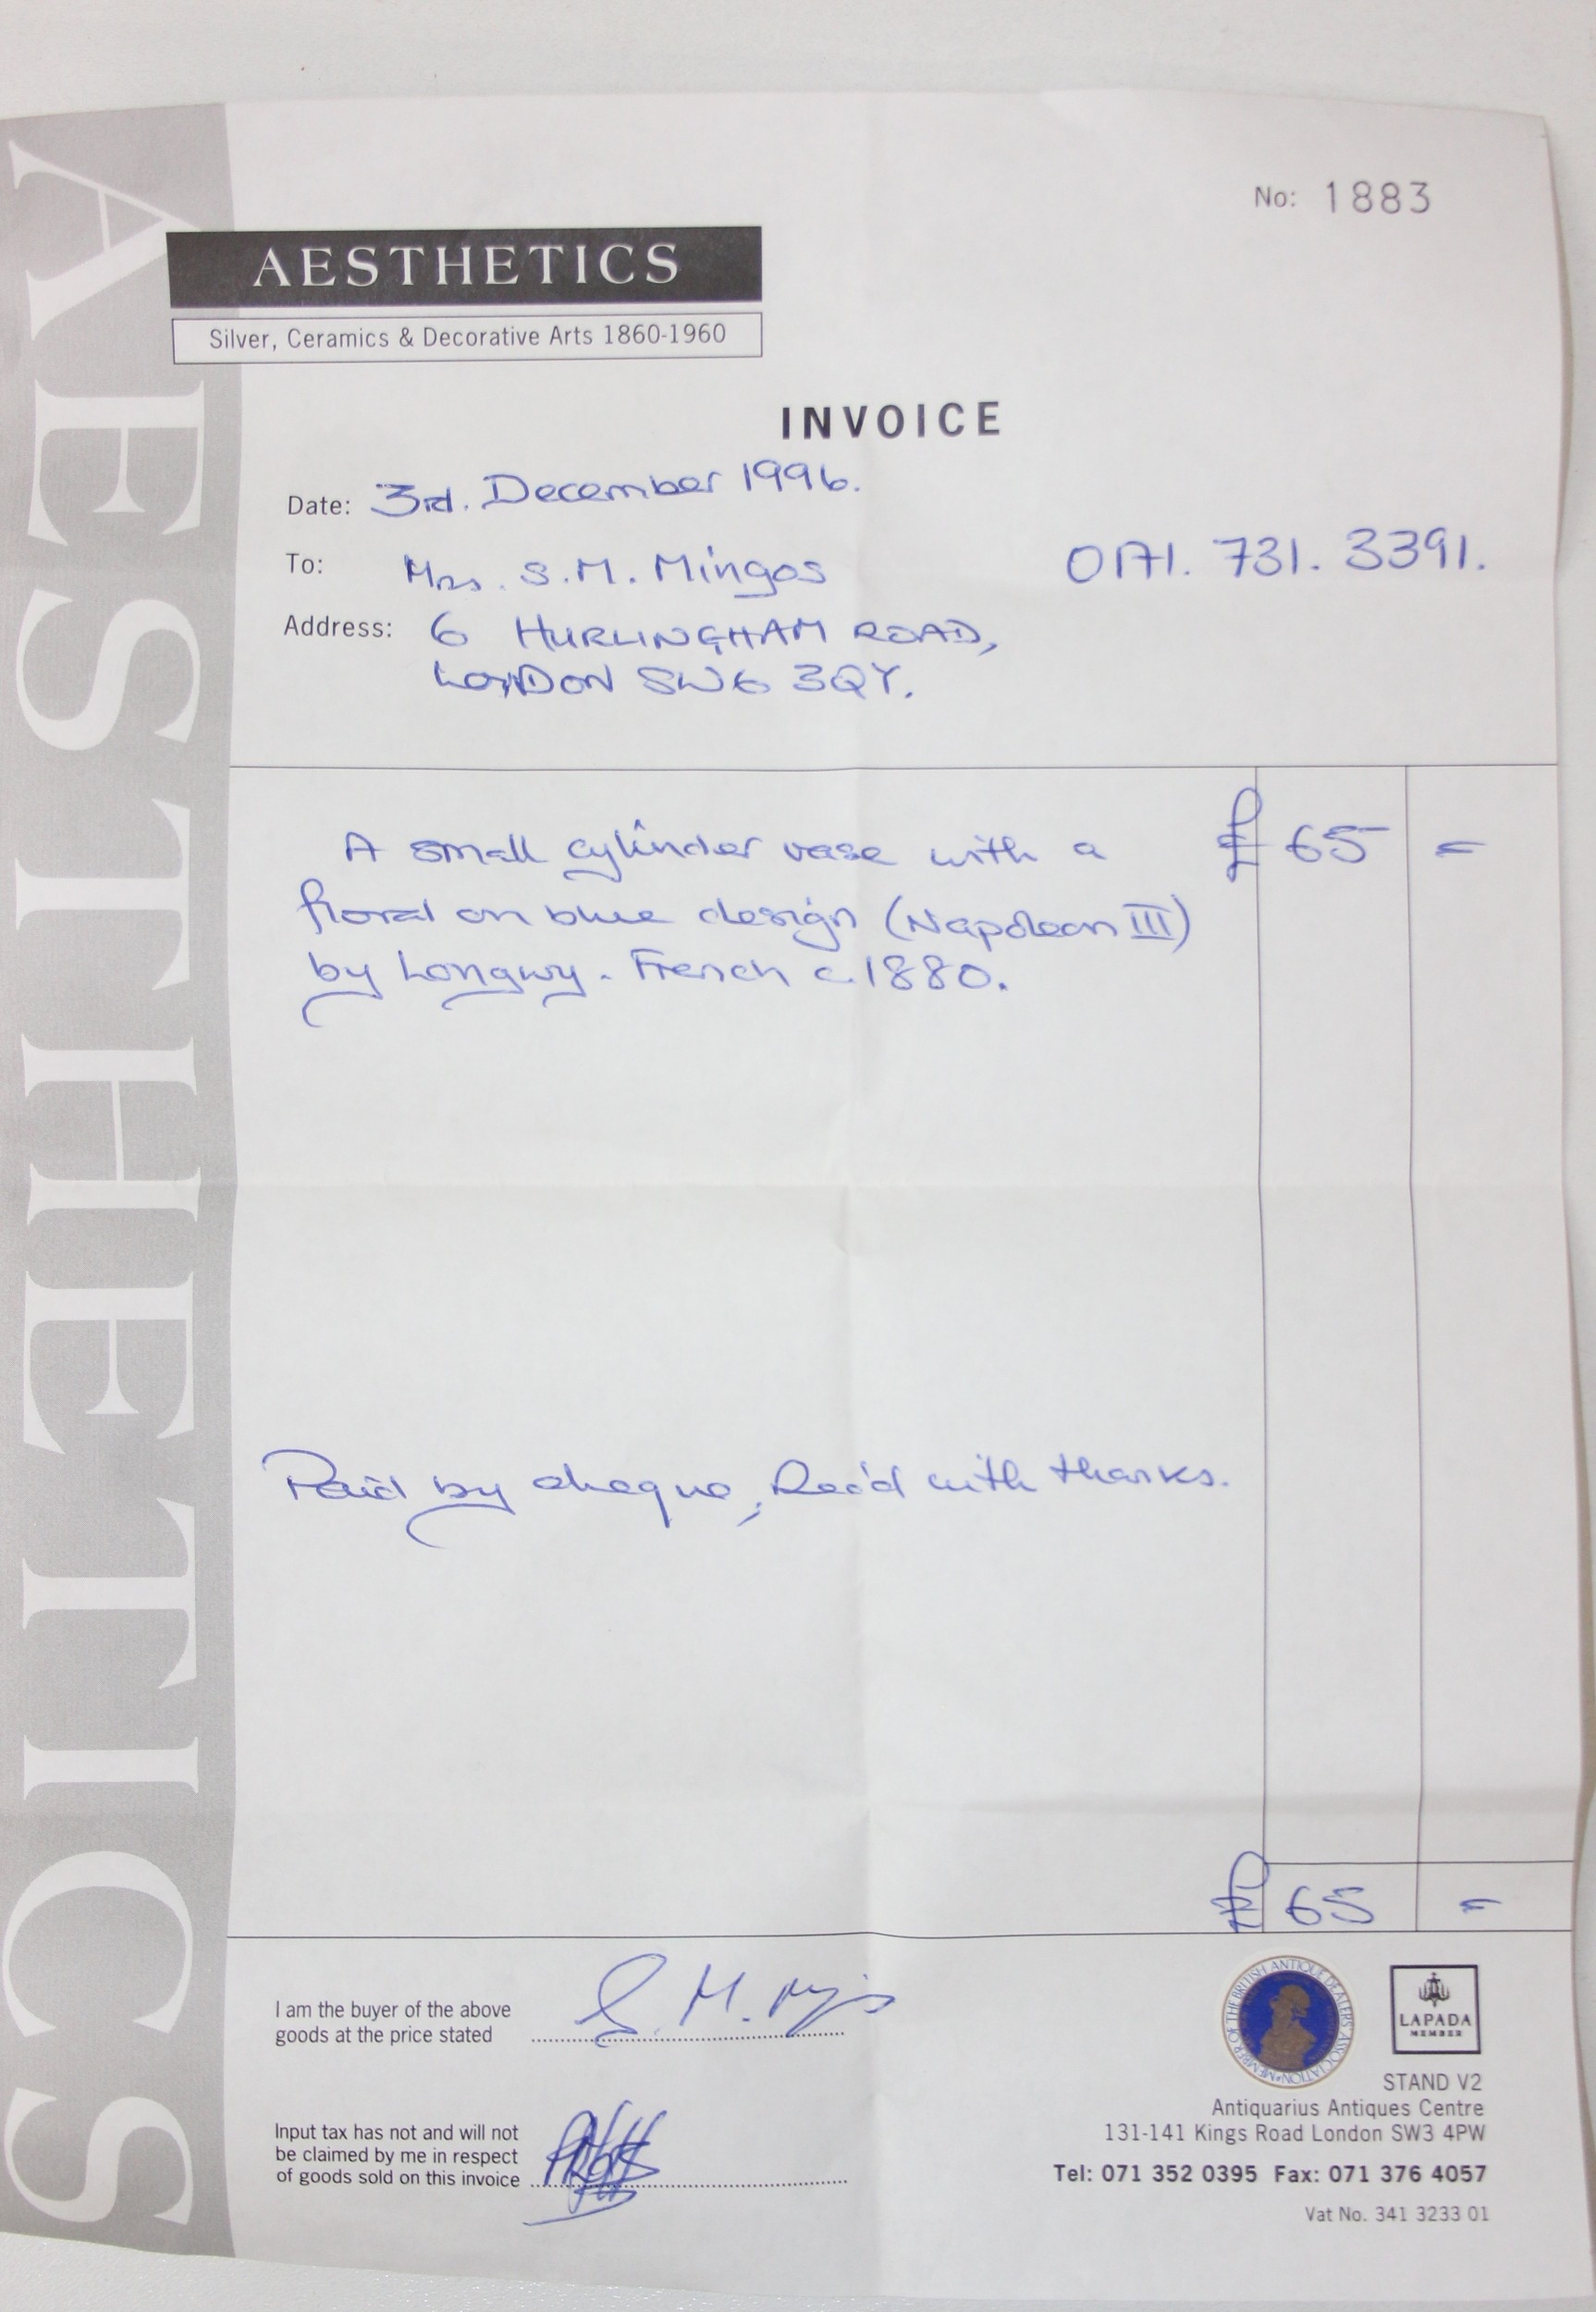 AESTHETICS
No: 1883
AESTHETICS
Silver, Ceramics & Decorative Arts 1860-1960
INVOICE
Date: 3rd. December 1996.
To: Mrs. S.M. Mingos 0171. 731. 3391.
Address: 6 HURLINGHAM ROAD,
LONDON SW6 3QY.
A small cylinder vase with a £ 65 =
floral on blue design (Napoleon III)
by Longwy. French c.1880.
Paid by cheque, Rec'd with thanks.
£ 65 =
I am the buyer of the above
goods at the price stated S. M.
Input tax has not and will not
be claimed by me in respect
of goods sold on this invoice
MEMBER OF THE BRITISH ANTIQUE DEALERS' ASSOCIATION
LAPADA
MEMBER
STAND V2
Antiquarius Antiques Centre
131-141 Kings Road London SW3 4PW
Tel: 071 352 0395 Fax: 071 376 4057
Vat No. 341 3233 01